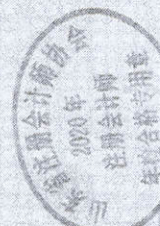 注册会计师协会
2020年
注册会计师
年检合格专用章